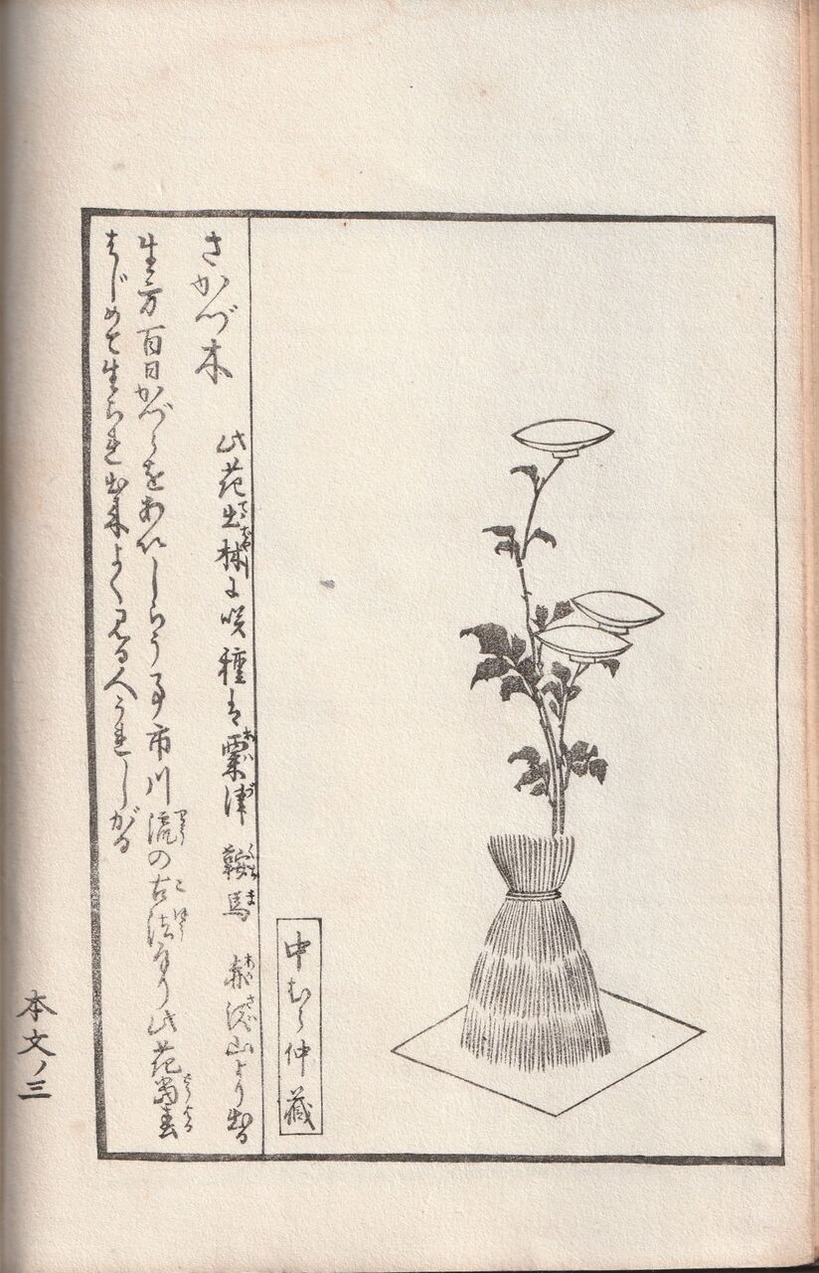 中むら仲蔵
さかづ木
此花出林に咲種は粟津 鞍馬 赤沢山より出る
生方百日かづらをあいしらう事市川流の古法なり此花当春
はじめて生られ出来よく見る人うれしがる
本文ノ三